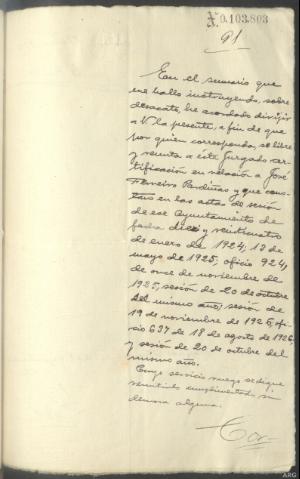 X.0.103.803
91
En el sumario que
me hallo instruyendo, sobre
desacato, he acordado dirijir
a V la presente, a fin de que
por quien corresponda, se libre
y remita a éste Juzgado cer-
tificación en relación a José
Ferreiro Pardiñas y que cons-
tan en las actas de sesión
de ese Ayuntamiento de
fecha diez y veinticuatro
de enero de 1924, 12 de
mayo de 1925, oficio 924,
de once de noviembre de
1925, sesión de 20 de octubre
del mismo año, sesión de
19 de noviembre de 1926, ofi-
cio 637 de 18 de agosto de 1926
y sesión de 20 de octubre del
mismo año.
Cuyo servicio ruego se digne
remitirlo cumplimentado sin
demora alguna.
ARG